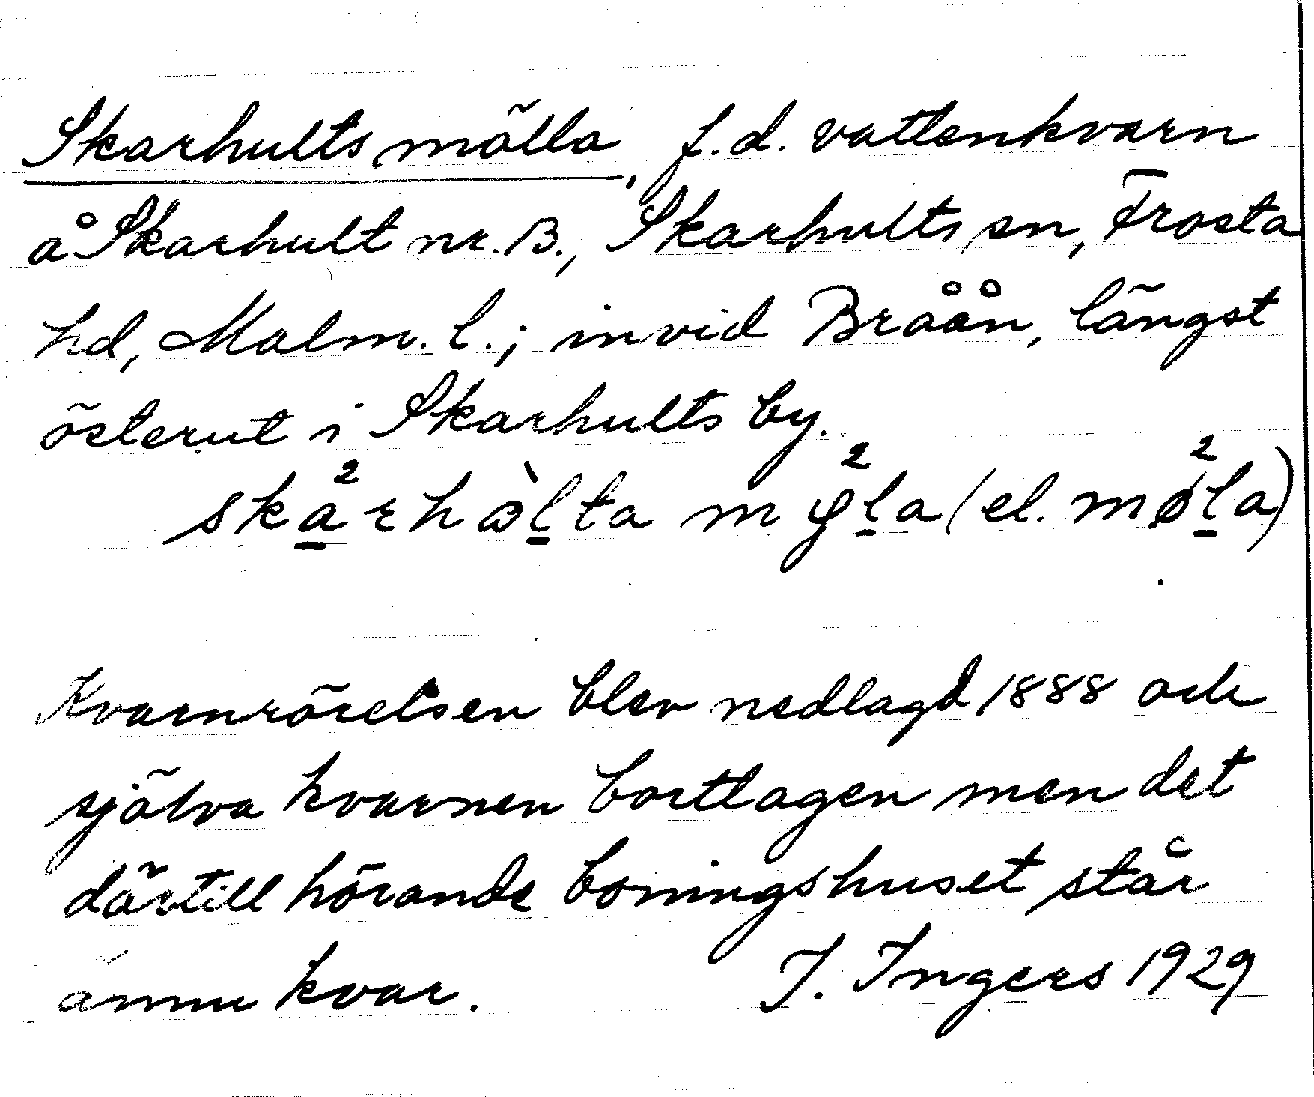 Skarhults mölla, f.d. vattenkvarn
å Skarhult nr. 13., Skarhults sn, Frosta
hd, Malm. l.; invid Bråån, längst
österut i Skarhults by.
ska²rhɔ̀lta mφ²la (el. mø²la)
Kvarnrörelsen blev nedlagd 1888 och
själva kvarnen borttagen men det
därtill hörande boningshuset står
ännu kvar. I. Ingers 1929